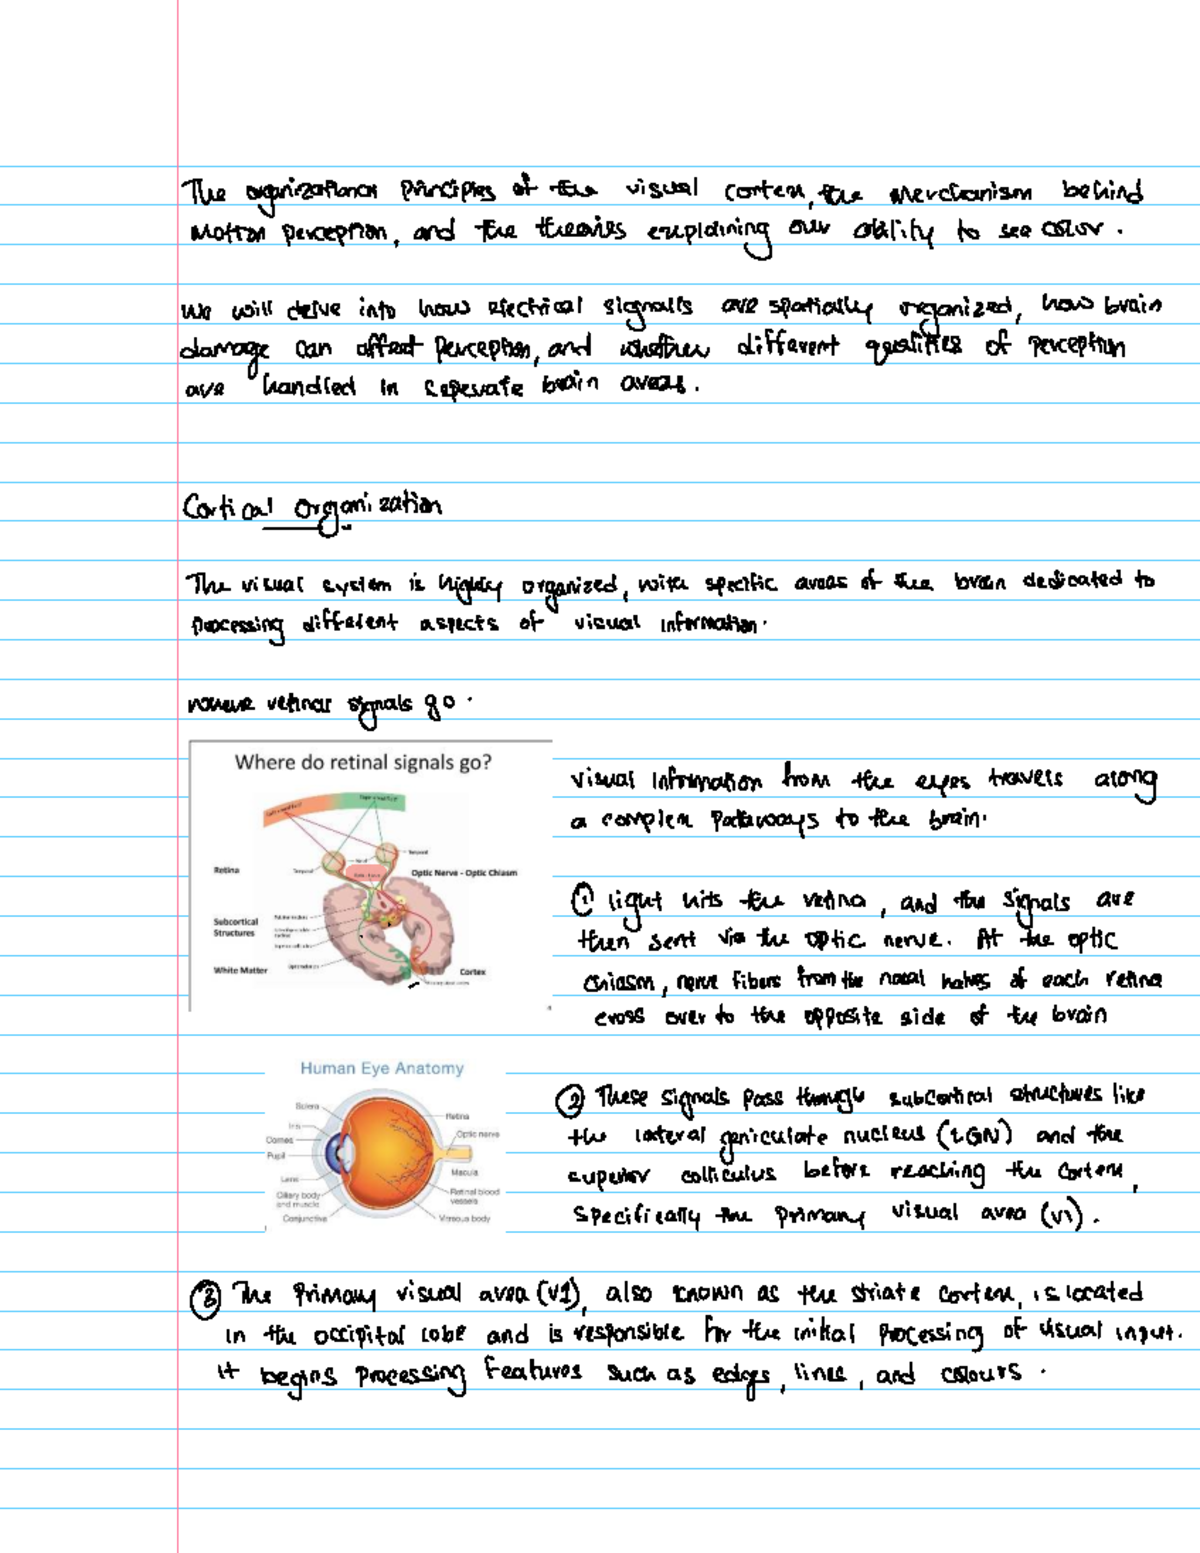 The organizational principles of the visual cortex, the merchanism behind
motion perception, and the theories explaining our ability to see color.
We will delve into how electrical signalls are spatially organized, how brain
damage can affect perception, and whether different qualities of perception
are handled in seperate brain areas.
Cortical Organization
The visual system is highly organized, with specific areas of the brain dedicated to
processing different aspects of visual information.
retinal signals go.
Where do retinal signals go?
Retina
Temporal
Nasal
Temporal
Optic Nerve - Optic Chiasm
Subcortical
Structures
White Matter
Cortex
visual information from the eyes travels along
a complex pathways to the brain.
① light hits the retina, and the signals are
then sent via the optic nerve. At the optic
chiasm, nerve fibers from the nasal halves of each retina
cross over to the opposite side of the brain
Human Eye Anatomy
Sclera
Iris
Cornea
Pupil
Lens
Ciliary body
and muscle
Conjunctive
Retina
Optic nerve
Macula
Retinal blood
vessels
Vitreous body
② These signals pass through subcortical structures like
the lateral geniculate nucleus (LGN) and the
superior colliculus before reaching the cortex,
specifically the primary visual area (V1).
③ The primary visual area (V1), also known as the striate cortex, is located
in the occipital lobe and is responsible for the initial processing of visual input.
It begins processing features such as edges, lines, and colours.